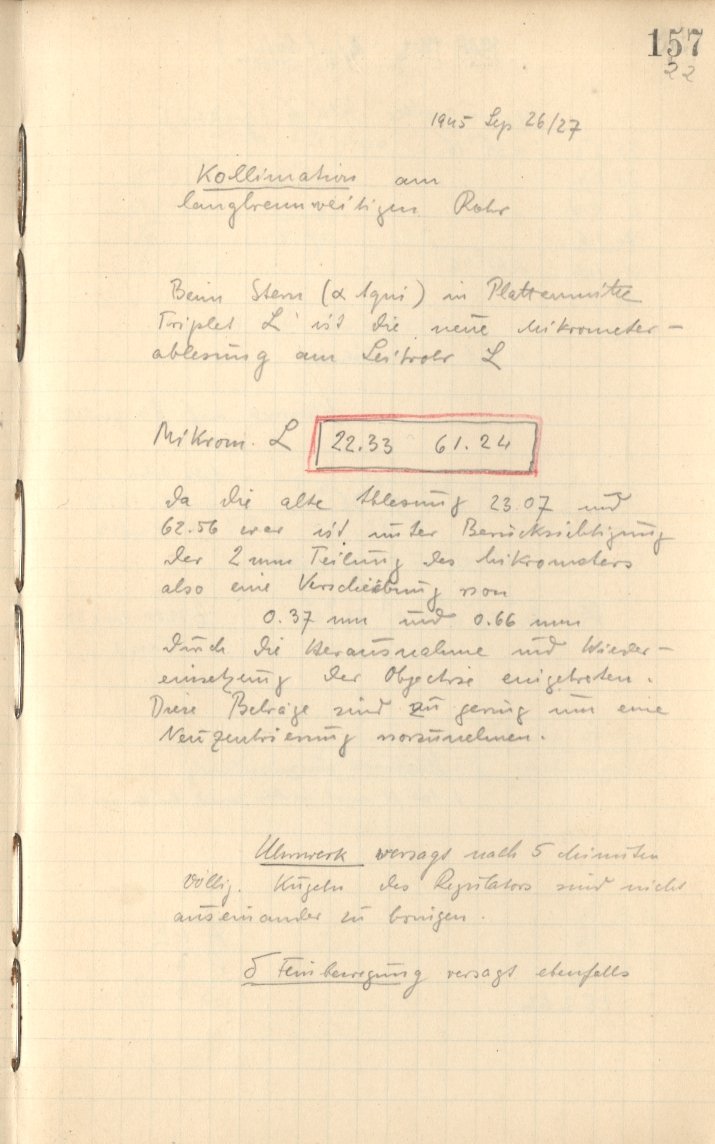 157
22
1945 Sep 26/27
Kollimation am
langbrennweitigen Rohr
Beim Stern (α Aqui) in Plattenmitte
Triplet L ist die neue Mikrometer-
ablesung am Leitrohr L
Mikrom. L 22.33 61.24
Da die alte Ablesung 23.07 und
62.56 war ist unter Berücksichtigung
der 2 mm Teilung des Mikrometers
also eine Verschiebung von
0.37 mm und 0.66 mm
durch die Herausnahme und Wieder-
einsetzung der Objective eingetreten.
Diese Beträge sind zu gering um eine
Neuzentrierung vorzunehmen.
Uhrwerk versagt nach 5 Minuten
völlig. Kugeln des Regulators sind nicht
auseinander zu bringen.
δ Feinbewegung versagt ebenfalls